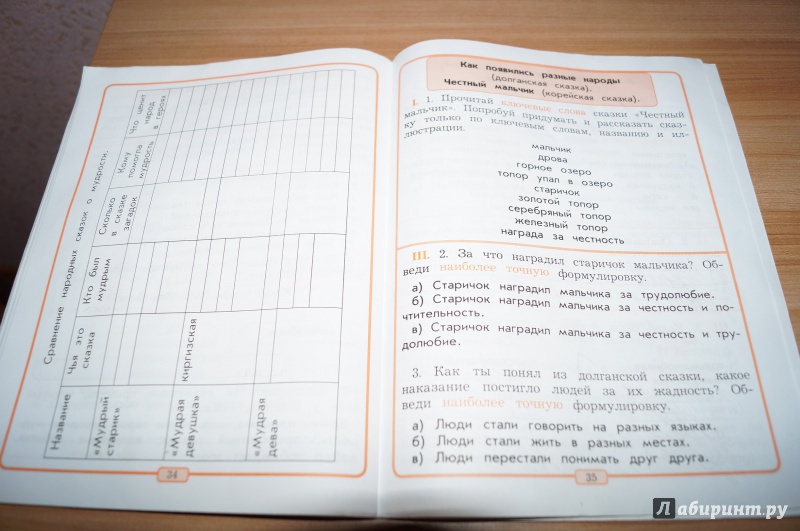 Сравнение народных сказок о мудрости.
Название
Чья это сказка
Кто был мудрым
Сколько в сказке загадок
Кому помогла мудрость
Что ценит народ в героях
«Мудрый старик»
«Мудрая девушка»
киргизская
«Мудрая дева»
34
Как появились разные народы
(долганская сказка).
Честный мальчик (корейская сказка).
I. 1. Прочитай ключевые слова сказки «Честный
мальчик». Попробуй придумать и рассказать сказ-
ку только по ключевым словам, названию и ил-
люстрации.
мальчик
дрова
горное озеро
топор упал в озеро
старичок
золотой топор
серебряный топор
железный топор
награда за честность
III. 2. За что наградил старичок мальчика? Об-
веди наиболее точную формулировку.
а) Старичок наградил мальчика за трудолюбие.
б) Старичок наградил мальчика за честность и по-
чтительность.
в) Старичок наградил мальчика за честность и тру-
долюбие.
3. Как ты понял из долганской сказки, какое
наказание постигло людей за их жадность? Об-
веди наиболее точную формулировку.
а) Люди стали говорить на разных языках.
б) Люди стали жить в разных местах.
в) Люди перестали понимать друг друга.
35
Лабиринт.ру